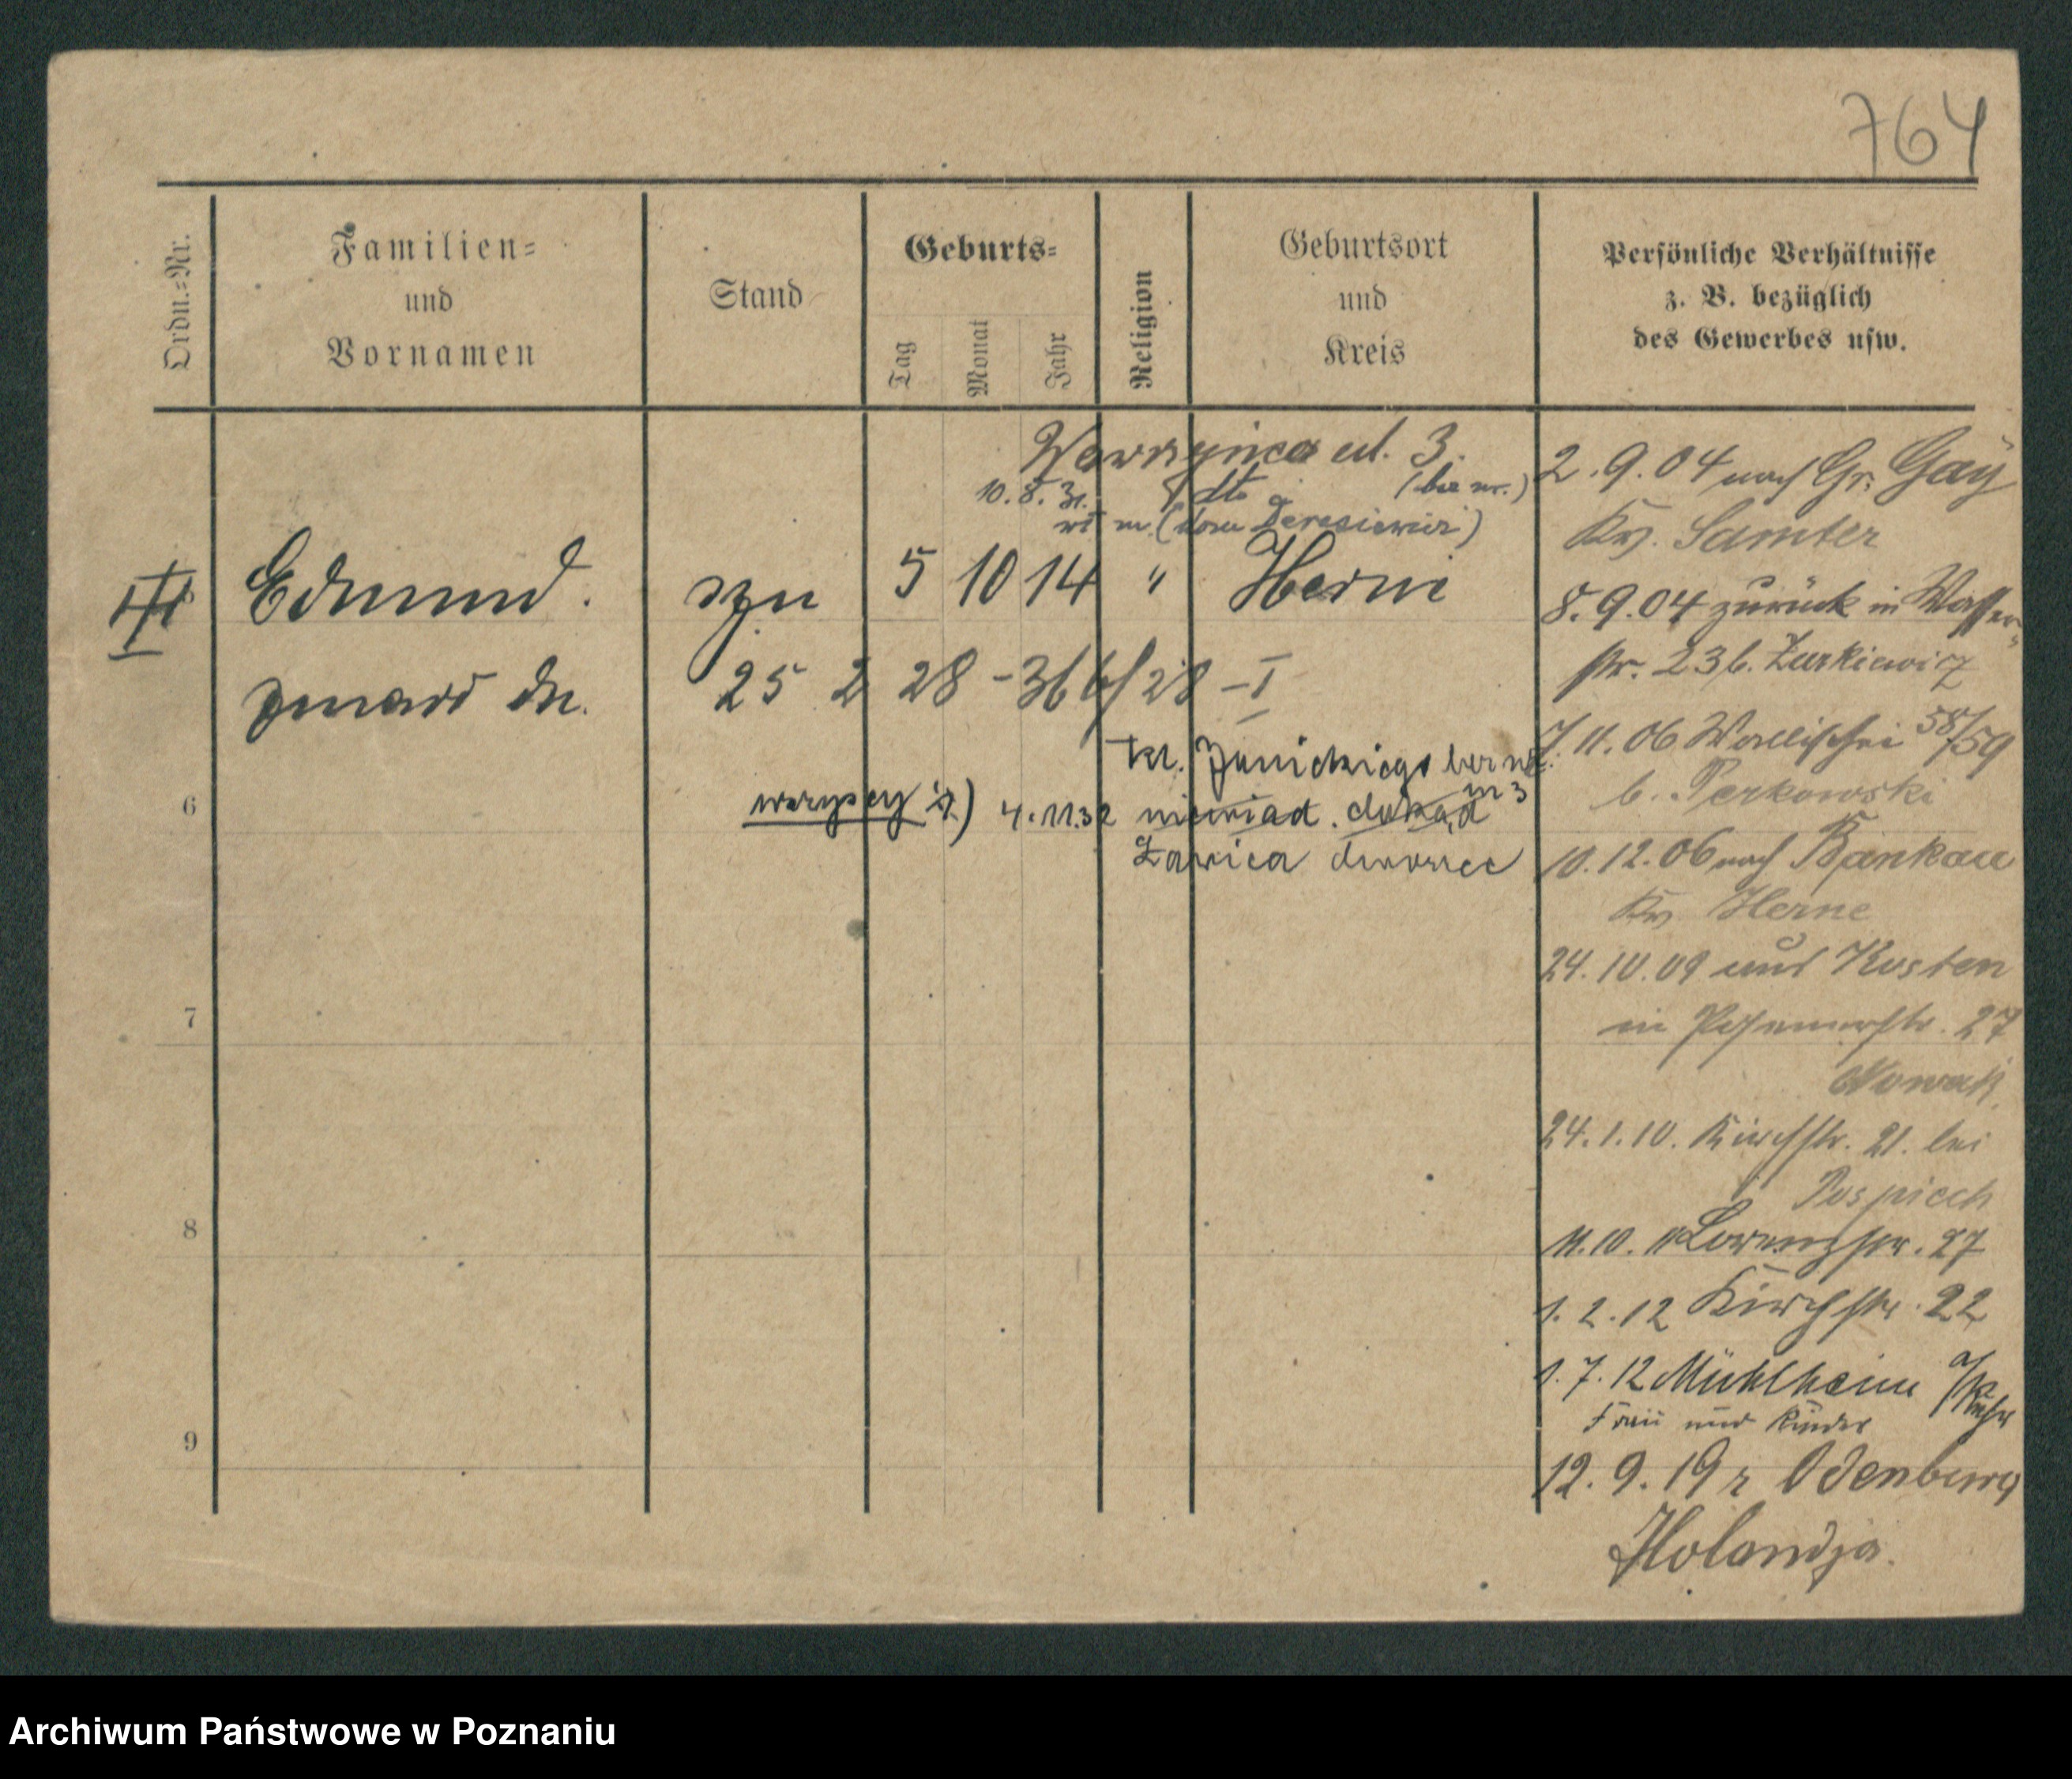 764
Ordn.-Nr.
Familien-
und
Vornamen
Stand
Geburts-
Tag
Monat
Jahr
Religion
Geburtsort
und
Kreis
Persönliche Verhältnisse
z. B. bezüglich
des Gewerbes usw.
Wawrzyńca ul. 3.
10.8.31. dto (bez nr.)
III Edmund. syn 5 10 14 " Herni
zmarł dn. 25 2 28 - 366/28 - I
kl. Janickiego bez nr.
6
wszyscy 4.11.32 niewiad. dokąd
Ławica dworzec
7
8
9
2.9.04 nach Gr. Gay
Kr. Samter
8.9.04 zurück in Wasser-
str. 23 b. Zurkiewicz
7.11.06 Wallischei 58/59
b. Perkowski
10.12.06 nach Bankau
Kr. Herne
24.10.09 aus Kosten
in Posenerstr. 27
Nowak
24.1.10. Kirchstr. 21. bei
Pospiech
11.10.11 Lorenzstr. 27
1.2.12 Kirchstr. 22
1.7.12 Mühlheim a/Ruhr
Frau und Kinder
12.9.19 z Odenburg
Holandja.
Archiwum Państwowe w Poznaniu